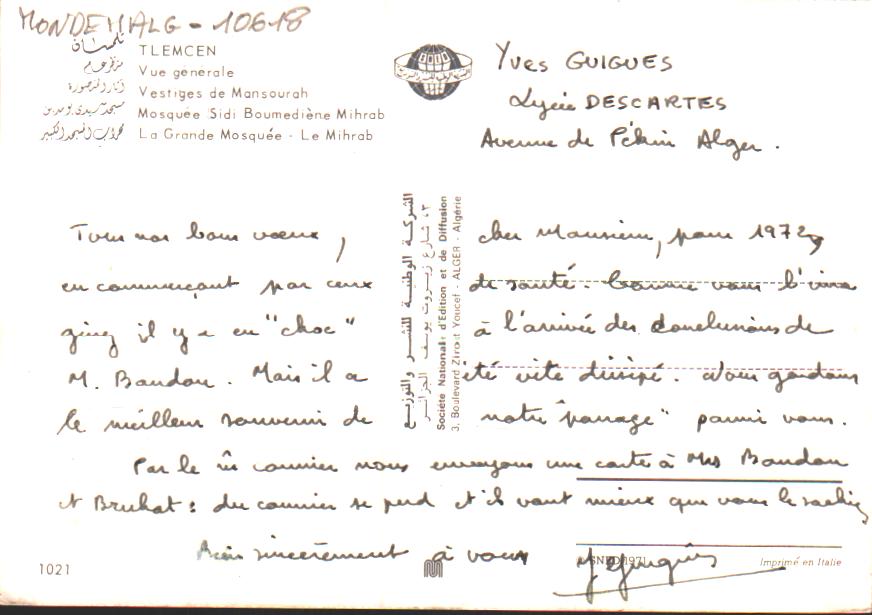 MONDEHALG - 10618
تلمسان TLEMCEN
منظر عام Vue générale
آثار المنصورة Vestiges de Mansourah
مسجد سيدي بومدين Mosquée Sidi Boumediène Mihrab
محراب المسجد الكبير La Grande Mosquée - Le Mihrab
Yves GUIGUES
Lycée DESCARTES
Avenue de Pékin Alger.
Tous nos bons voeux, cher Monsieur, pour 1972,
en commençant par ceux de santé. Comme vous l'ima
ginez il y a eu "choc" à l'arrivée des conclusions de
M. Baudou. Mais il a été vite dissipé. Nous gardons
le meilleur souvenir de notre "passage" parmi vous.
Par le m̂ courrier nous envoyons une carte à Mrs Baudou
et Bruhat: du courrier se perd et il vaut mieux que vous le sachiez
Bien sincèrement à vous
Y Guigues
الشركة الوطنية للنشر والتوزيع
٣، شارع زيروت يوسف الجزائر
Société Nationale d'Edition et de Diffusion
3, Boulevard Zirout Youcef - ALGER - Algérie
1021
SNED 1971
Imprimé en Italie